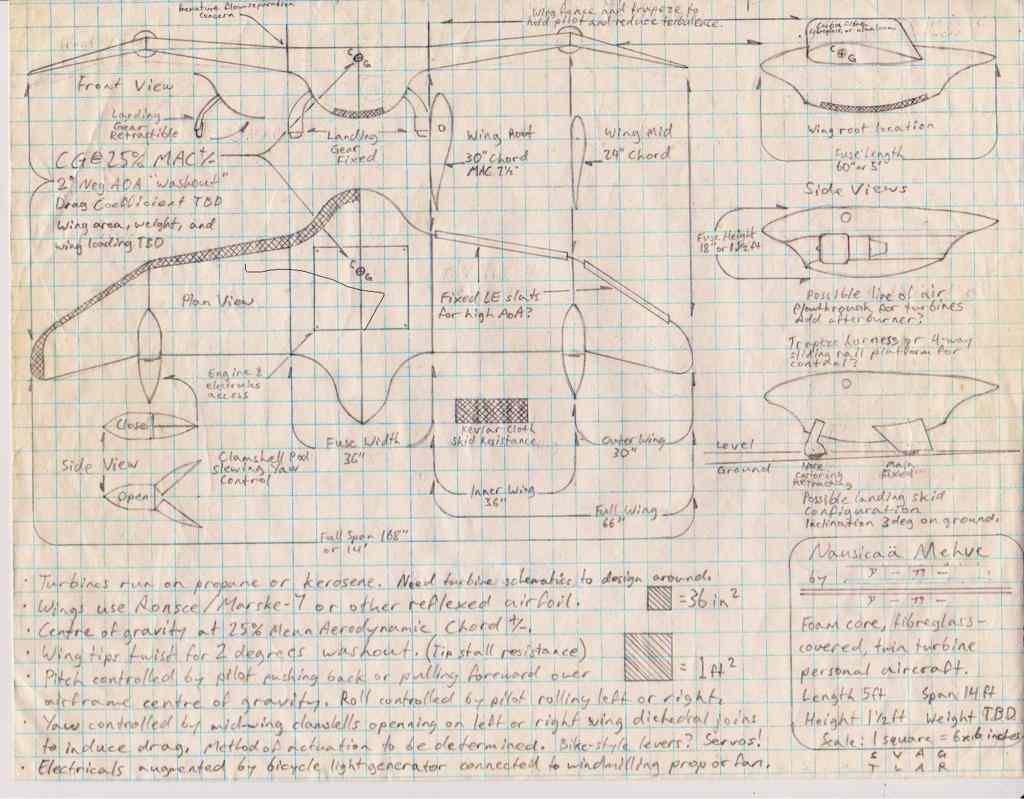 Premature flow separation
concern
Wing fence and trapeze to
hold pilot and reduce turbulence.
C G
Front View
Landing
Gear
Retractible
Landing
Gear
Fixed
Wing Root
30" Chord
MAC 7½"
Wing Mid
24" Chord
C G
Wing root location
Fuse Length
60" or 5'
Side Views
CG@ 25% MAC +/-
2° Neg AOA "washout"
Drag Coefficient TBD
Wing area, weight, and
wing loading TBD
Fuse Height
18" or 1½ ft
C G
Plan View
Fixed LE slats
for high AoA?
Possible line of air
flowthrough for turbines
Add afterburner?
Trapeze harness or 4-way
sliding rail platform for
control?
Engine &
electronics
access
Close
Side View
Open
Clamshell Pod
Slewing Yaw
Control
Fuse Width
36"
Kevlar Cloth
Skid Resistance
Outer Wing
30"
Inner Wing
36"
Full Wing
66"
Full Span 168"
or 14'
Level
Ground
Nose
Castoring
Retracting
Main
Fixed
Possible landing skid
configuration
Inclination 3 deg on ground.
· Turbines run on propane or kerosene. Need turbine schematics to design around.
· Wings use Ronsce/Marske-7 or other reflexed airfoil.
= 36 in²
· Centre of gravity at 25% Mean Aerodynamic Chord +/-.
· Wing tips twist for 2 degrees washout. (Tip stall resistance)
= 1 ft²
· Pitch controlled by pilot pushing back or pulling forward over
airframe centre of gravity. Roll controlled by pilot rolling left or right.
· Yaw controlled by midwing clamshells openning on left or right wing diehedral joins
to induce drag. Method of actuation to be determined. Bike-style levers? Servos!
· Electricals augmented by bicycle light generator connected to windmilling prop or fan.
Nausicaä Mehve
by
Foam core, fibreglass-
covered, twin turbine
personal aircraft.
Length 5ft Span 14ft
Height 1½ft Weight TBD
Scale: 1 square = 6x6 inches
S V A G
T L A R